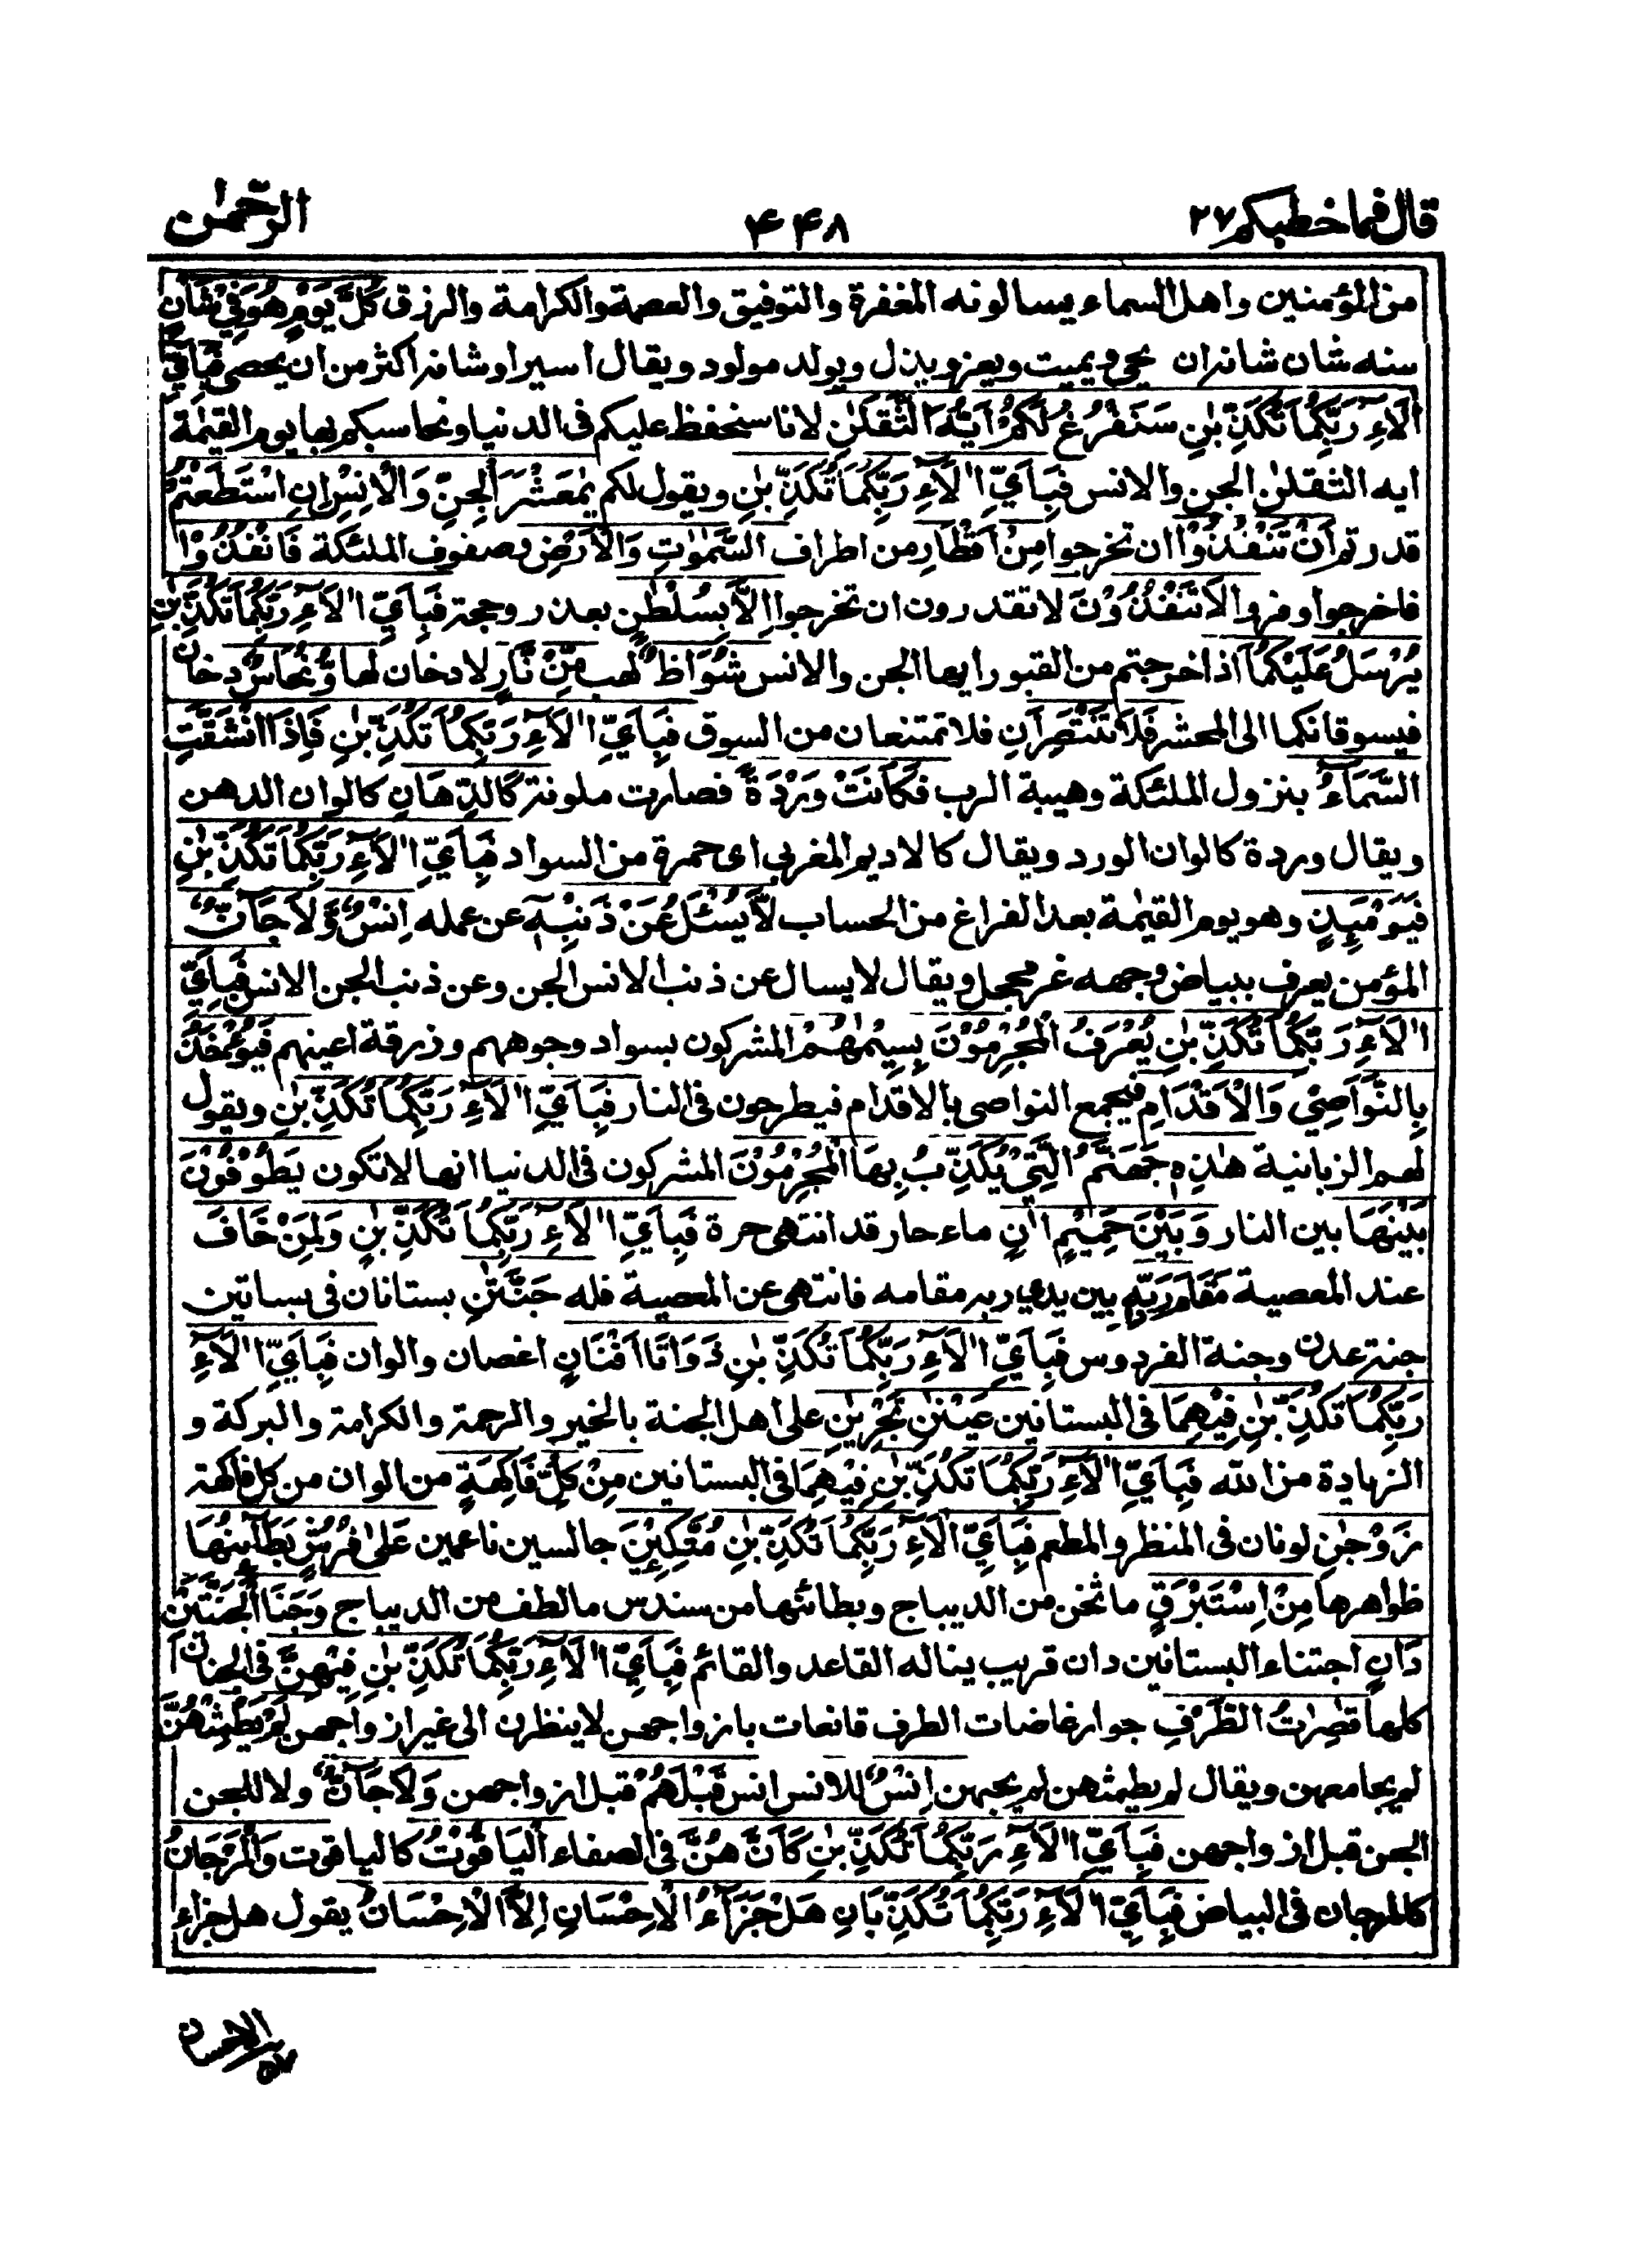 قال فما خطبكم ٢٧
۴۴۸
الرّحمٰن
من المؤمنين واهل السماء يسالونه المغفرة والتوفيق والعصمة والكرامة والرزق كُلَّ يَوْمٍ هُوَ فِيْ شَاْنٍ
سنه شان شانه ان يحي ويميت ويعز ويذل ويولد مولود ويقال اسيرا وشانه اكثر من ان يحصى فَبِاَيِّ
اٰلَآءِ رَبِّكُمَا تُكَذِّبٰنِ سَنَفْرُغُ لَكُمْ اَيُّهَ الثَّقَلٰنِ لانا سنحفظ عليكم فى الدنيا ونحاسبكم بها يوم القيٰمة
ايه الثقلٰن الجن والانس فَبِاَيِّ اٰلَآءِ رَبِّكُمَا تُكَذِّبٰنِ ويقول لكم يٰمَعْشَرَ الْجِنِّ وَالْاِنْسِ اِنِ اسْتَطَعْتُمْ
قدرتم اَنْ تَنْفُذُوْا ان تخرجوا مِنْ اَقْطَارِ من اطراف السَّمٰوٰتِ وَالْاَرْضِ بصفوف الملئكة فَانْفُذُوْا
فاخرجوا وفروا لَا تَنْفُذُوْنَ لا تقدرون ان تخرجوا اِلَّا بِسُلْطٰنٍ بعذر وحجة فَبِاَيِّ اٰلَآءِ رَبِّكُمَا تُكَذِّبٰنِ
يُرْسَلُ عَلَيْكُمَا اذا خرجتم من القبور ايها الجن والانس شُوَاظٌ لهب مِّنْ نَّارٍ لا دخان لها وَّنُحَاسٌ دخان
فيسوقانكما الى المحشر فَلَا تَنْتَصِرَانِ فلا تمتنعان من السوق فَبِاَيِّ اٰلَآءِ رَبِّكُمَا تُكَذِّبٰنِ فَاِذَا انْشَقَّتِ
السَّمَآءُ بنزول الملئكة وهيبة الرب فَكَانَتْ وَرْدَةً فصارت ملونة كَالدِّهَانِ كالوان الدهن
ويقال وردة كالوان الورد ويقال كالاديم المغربى اى حمرة من السواد فَبِاَيِّ اٰلَآءِ رَبِّكُمَا تُكَذِّبٰنِ
فَيَوْمَئِذٍ وهو يوم القيٰمة بعد الفراغ من الحساب لَّا يُسْئَلُ عَنْ ذَنْبِهٖٓ عن عمله اِنْسٌ وَّلَا جَآنٌّ
المؤمن يعرف ببياض وجهه غر محجل ويقال لا يسال عن ذنب الانس الجن وعن ذنب الجن الانس فَبِاَيِّ
اٰلَآءِ رَبِّكُمَا تُكَذِّبٰنِ يُعْرَفُ الْمُجْرِمُوْنَ بِسِيْمٰهُمْ المشركون بسواد وجوههم وزرقة اعينهم فَيُؤْخَذُ
بِالنَّوَاصِيْ وَالْاَقْدَامِ فيجمع النواصى بالاقدام فيطرحون فى النار فَبِاَيِّ اٰلَآءِ رَبِّكُمَا تُكَذِّبٰنِ ويقول
لهم الزبانية هٰذِهٖ جَهَنَّمُ الَّتِيْ يُكَذِّبُ بِهَا الْمُجْرِمُوْنَ المشركون فى الدنيا انها لا تكون يَطُوْفُوْنَ
بَيْنَهَا بين النار وَبَيْنَ حَمِيْمٍ اٰنٍ ماء حار قد انتهى حرة فَبِاَيِّ اٰلَآءِ رَبِّكُمَا تُكَذِّبٰنِ وَلِمَنْ خَافَ
عند المعصية مَقَامَ رَبِّهٖ بين يدى ربه مقامه فانتهى عن المعصية فله جَنَّتٰنِ بستانان فى بساتين
جنة عدن وجنة الفردوس فَبِاَيِّ اٰلَآءِ رَبِّكُمَا تُكَذِّبٰنِ ذَوَاتَا اَفْنَانٍ اغصان والوان فَبِاَيِّ اٰلَآءِ
رَبِّكُمَا تُكَذِّبٰنِ فِيْهِمَا فى البستانين عَيْنٰنِ تَجْرِيٰنِ على اهل الجنة بالخير والرحمة والكرامة والبركة و
الزيادة من الله فَبِاَيِّ اٰلَآءِ رَبِّكُمَا تُكَذِّبٰنِ فِيْهِمَا فى البستانين مِنْ كُلِّ فَاكِهَةٍ من الوان من كل فاكهة
زَوْجٰنِ لونان فى المنظر والمطعم فَبِاَيِّ اٰلَآءِ رَبِّكُمَا تُكَذِّبٰنِ مُتَّكِئِيْنَ جالسين ناعمين عَلٰى فُرُشٍ بَطَآئِنُهَا
ظواهرها مِنْ اِسْتَبْرَقٍ ما ثخن من الديباج وبطائنها من سندس ما لطف من الديباج وَجَنَا الْجَنَّتَيْنِ
دَانٍ اجتناء البستانين دان قريب يناله القاعد والقائم فَبِاَيِّ اٰلَآءِ رَبِّكُمَا تُكَذِّبٰنِ فِيْهِنَّ فى الجنان
كلها قٰصِرٰتُ الطَّرْفِ جوار غاضات الطرف قانعات بازواجهن لا ينظرن الى غير ازواجهن لَمْ يَطْمِثْهُنَّ
لم يجامعهن ويقال لم يطمثهن لم يحبهن اِنْسٌ للانس انس قَبْلَهُمْ قبل ازواجهن وَلَا جَآنٌّ ولا للجن
الجن قبل ازواجهن فَبِاَيِّ اٰلَآءِ رَبِّكُمَا تُكَذِّبٰنِ كَاَنَّهُنَّ فى الصفاء الْيَاقُوْتُ كالياقوت وَالْمَرْجَانُ
كالمرجان فى البياض فَبِاَيِّ اٰلَآءِ رَبِّكُمَا تُكَذِّبَانِ هَلْ جَزَآءُ الْاِحْسَانِ اِلَّا الْاِحْسَانُ يقول هل جزاء
الاحسان